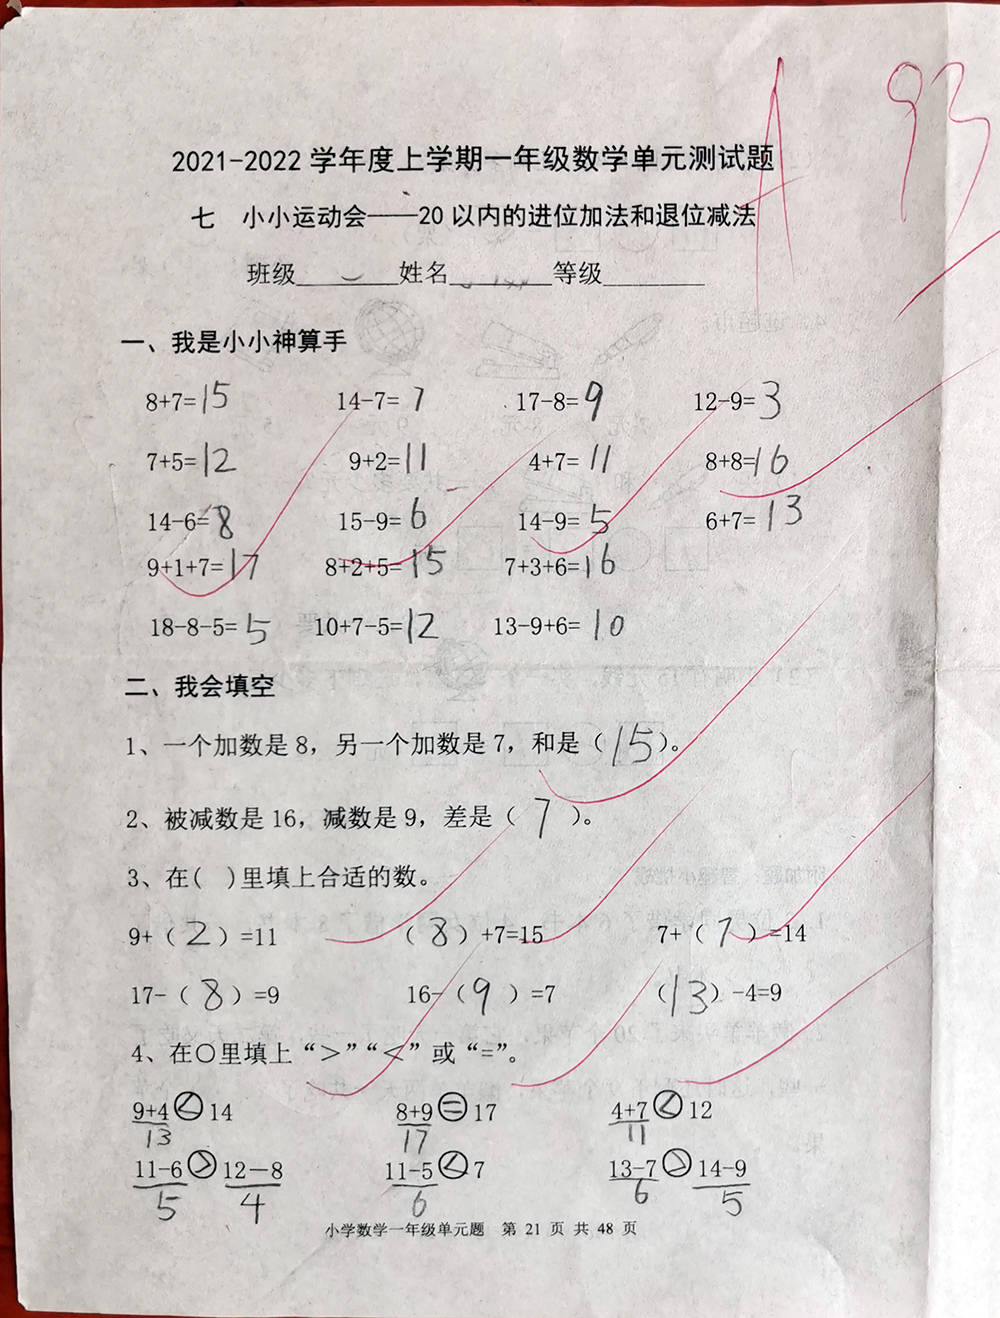 A 93
2021-2022学年度上学期一年级数学单元测试题
七 小小运动会——20以内的进位加法和退位减法
班级 姓名 等级
一、我是小小神算手
8+7=15 14-7=7 17-8=9 12-9=3
7+5=12 9+2=11 4+7=11 8+8=16
14-6=8 15-9=6 14-9=5 6+7=13
9+1+7=17 8+2+5=15 7+3+6=16
18-8-5=5 10+7-5=12 13-9+6=10
二、我会填空
1、一个加数是8，另一个加数是7，和是（15）。
2、被减数是16，减数是9，差是（7）。
3、在( )里填上合适的数。
9+（2）=11 （8）+7=15 7+（7）=14
17-（8）=9 16-（9）=7 （13）-4=9
4、在○里填上“＞”“＜”或“=”。
9+4<14 8+9=17 4+7<12
13 17 11
11-6>12-8 11-5<7 13-7>14-9
5 4 6 6 5
小学数学一年级单元题 第 21 页 共 48 页